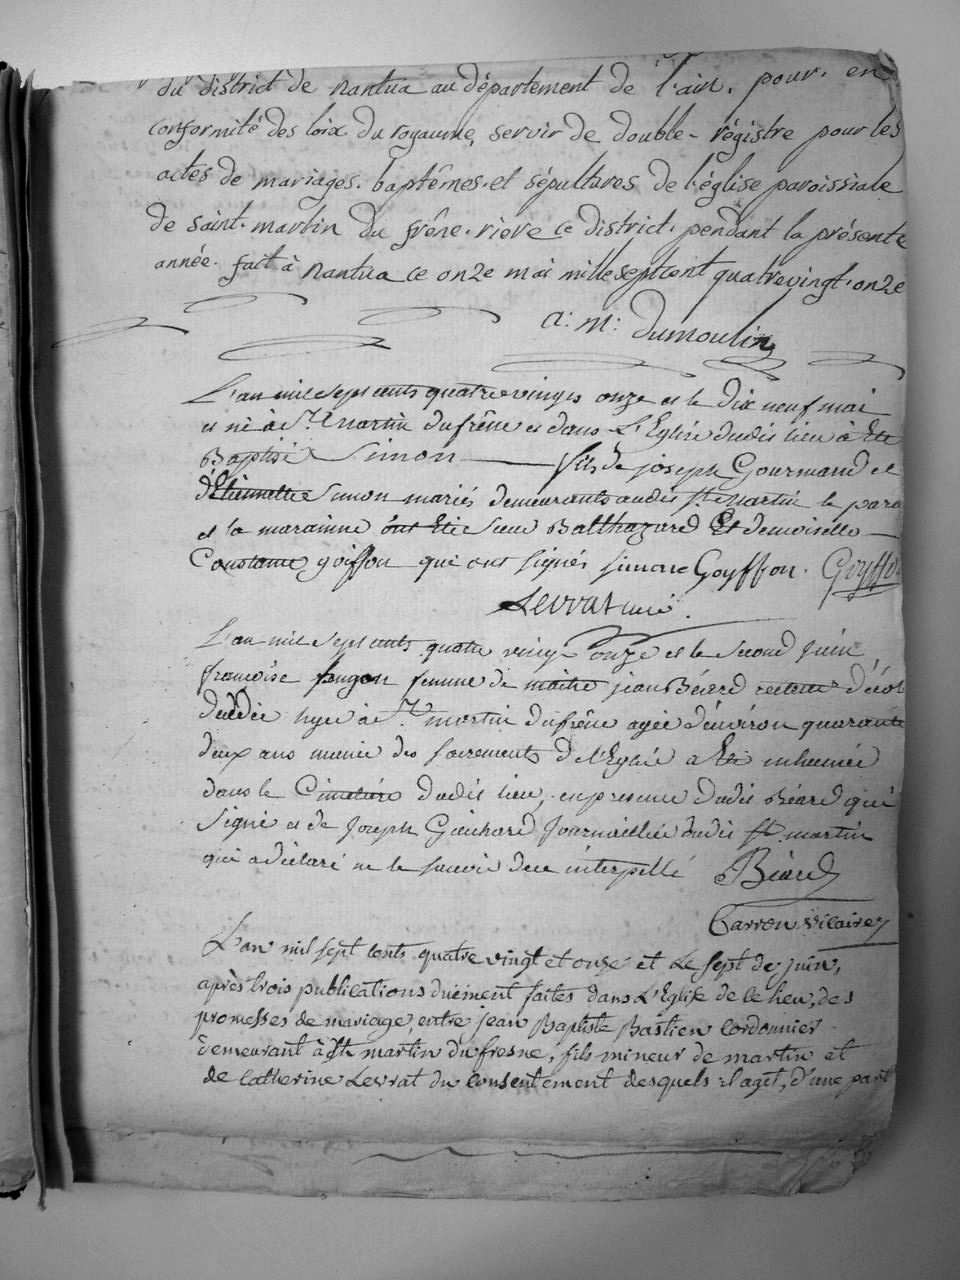 du district de nantua au département de l'ain. pour. en
conformité des loix du royaume, servir de double-régistre pour les
actes de mariages. baptêmes. et sépultures de l'église paroissiale
de saint. martin du frêne. riere ce district. pendant la présente
année. fait à nantua ce onze mai mille sept cent quatre vingt. onze
a: m: dumoulin
L'an mil sept cents quatre vingts onze et le dix neuf mai
est né à St martin dufrêne et dans L'Eglise dudit lieu à Eté
Baptisé Simon fils de joseph Gourmand et
d'Etiennette Simon mariés demeurants audit St martin le para
et la maraine ont Eté Balthazard Et demoiselle
Constance goiffon qui ont signés simone Goyffon. Goyffo
Levrat curé.
L'an mil sept cents quatre vingt onze et le second juin
françoise femme de maitre jean Béard recteur d'écol
décédée hyer à St martin dufrêne agée d'environ quarante
deux ans munie des sacrements de l'Eglise a Eté inhumée
dans le Cimetière dudit lieu, en presence dudit Béard qui
Signé et de Joseph Guichard Journaillier dudit St martin
qui a déclaré ne le savoir de ce interpellé Béard
Carron vicaire
L'an mil sept cents quatre vingt et onze et Le sept de juin,
après trois publications duement faites dans L'Eglise de ce lieu, des
promesses de mariage, entre jean Baptiste Bastien cordonnier
demeurant à St martin du fresne, fils mineur de martin et
de Catherine Levrat du consentement desquels il agit, d'une part